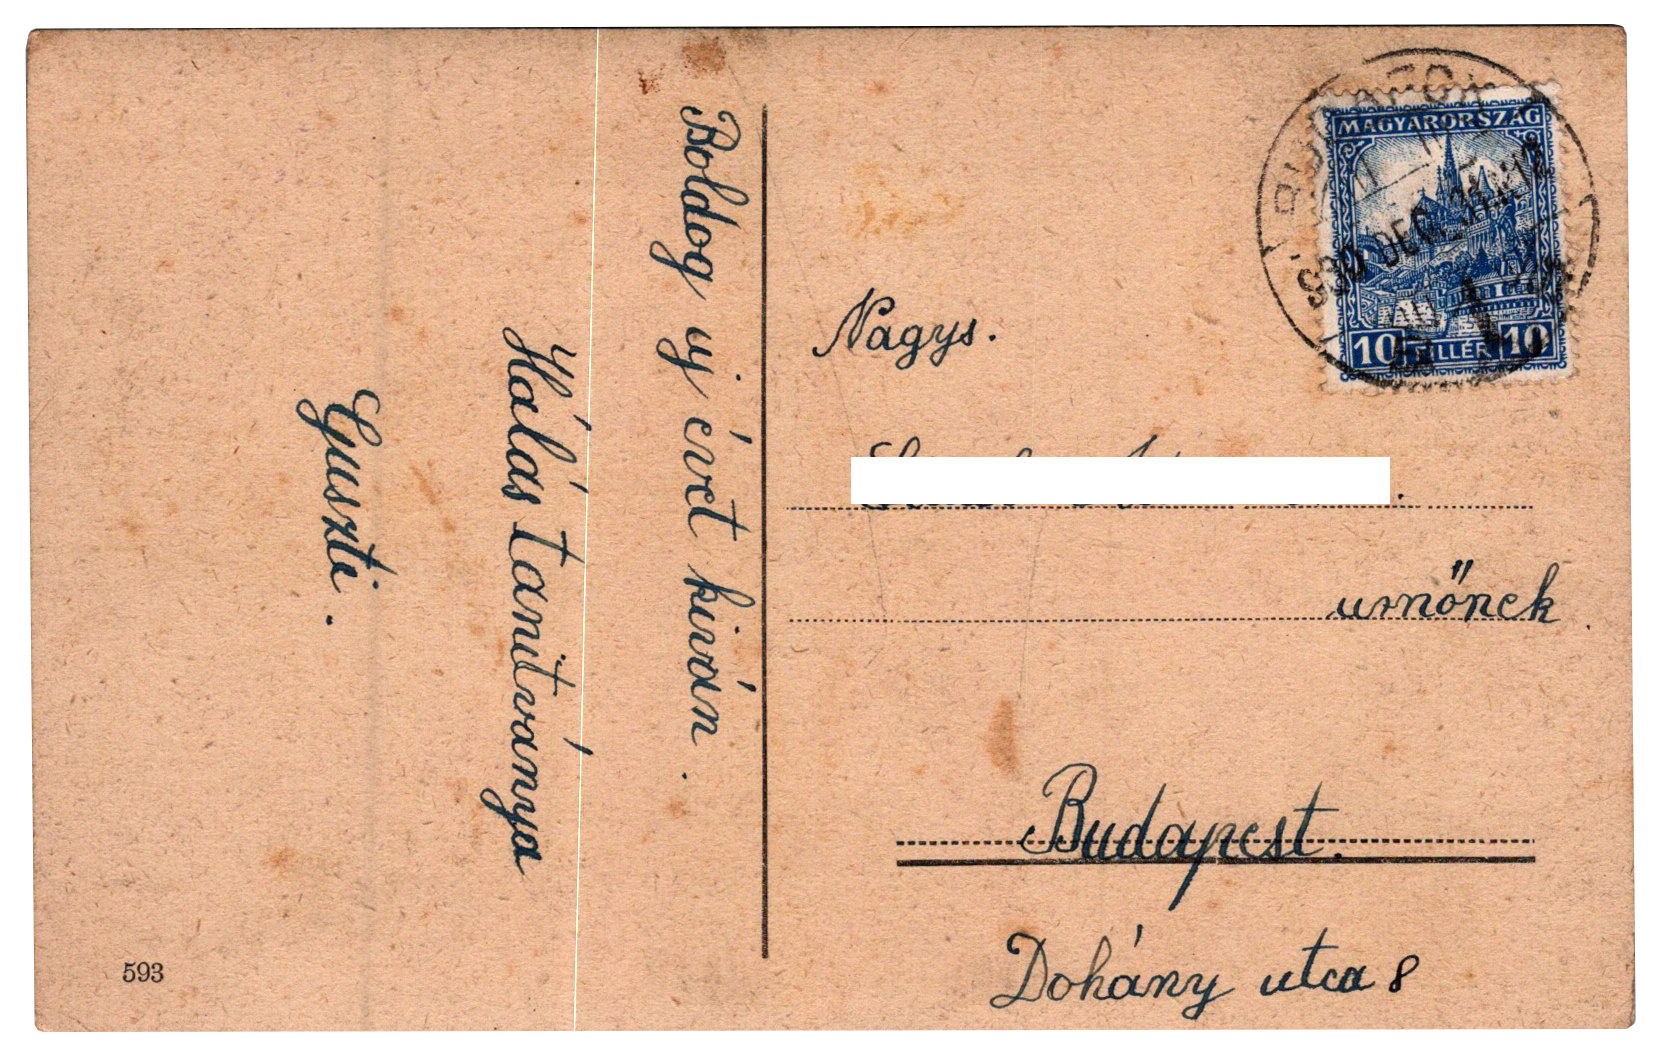 Boldog uj évet kiván.
Hálás tanitványa
Guszti.
593
MAGYARORSZÁG
10 FILLÉR 10
Nagys.
urnőnek
Budapest.
Dohány utca 8